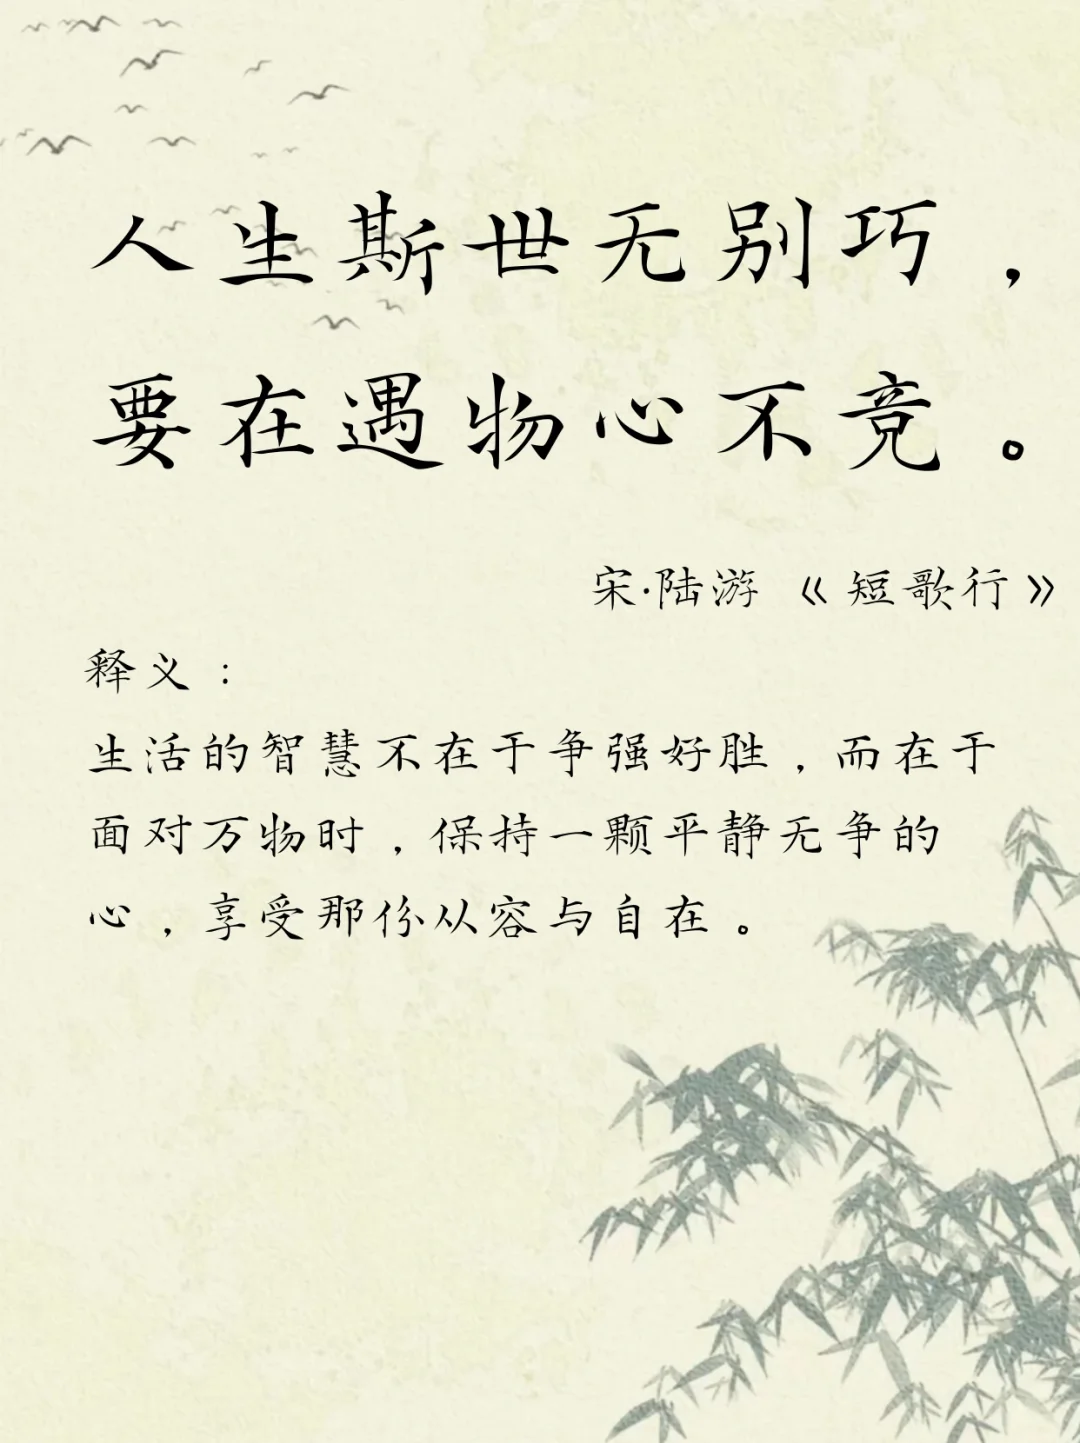 人生斯世无别巧，
要在遇物心不竞。
宋·陆游《短歌行》
释义：
生活的智慧不在于争强好胜，而在于
面对万物时，保持一颗平静无争的
心，享受那份从容与自在。